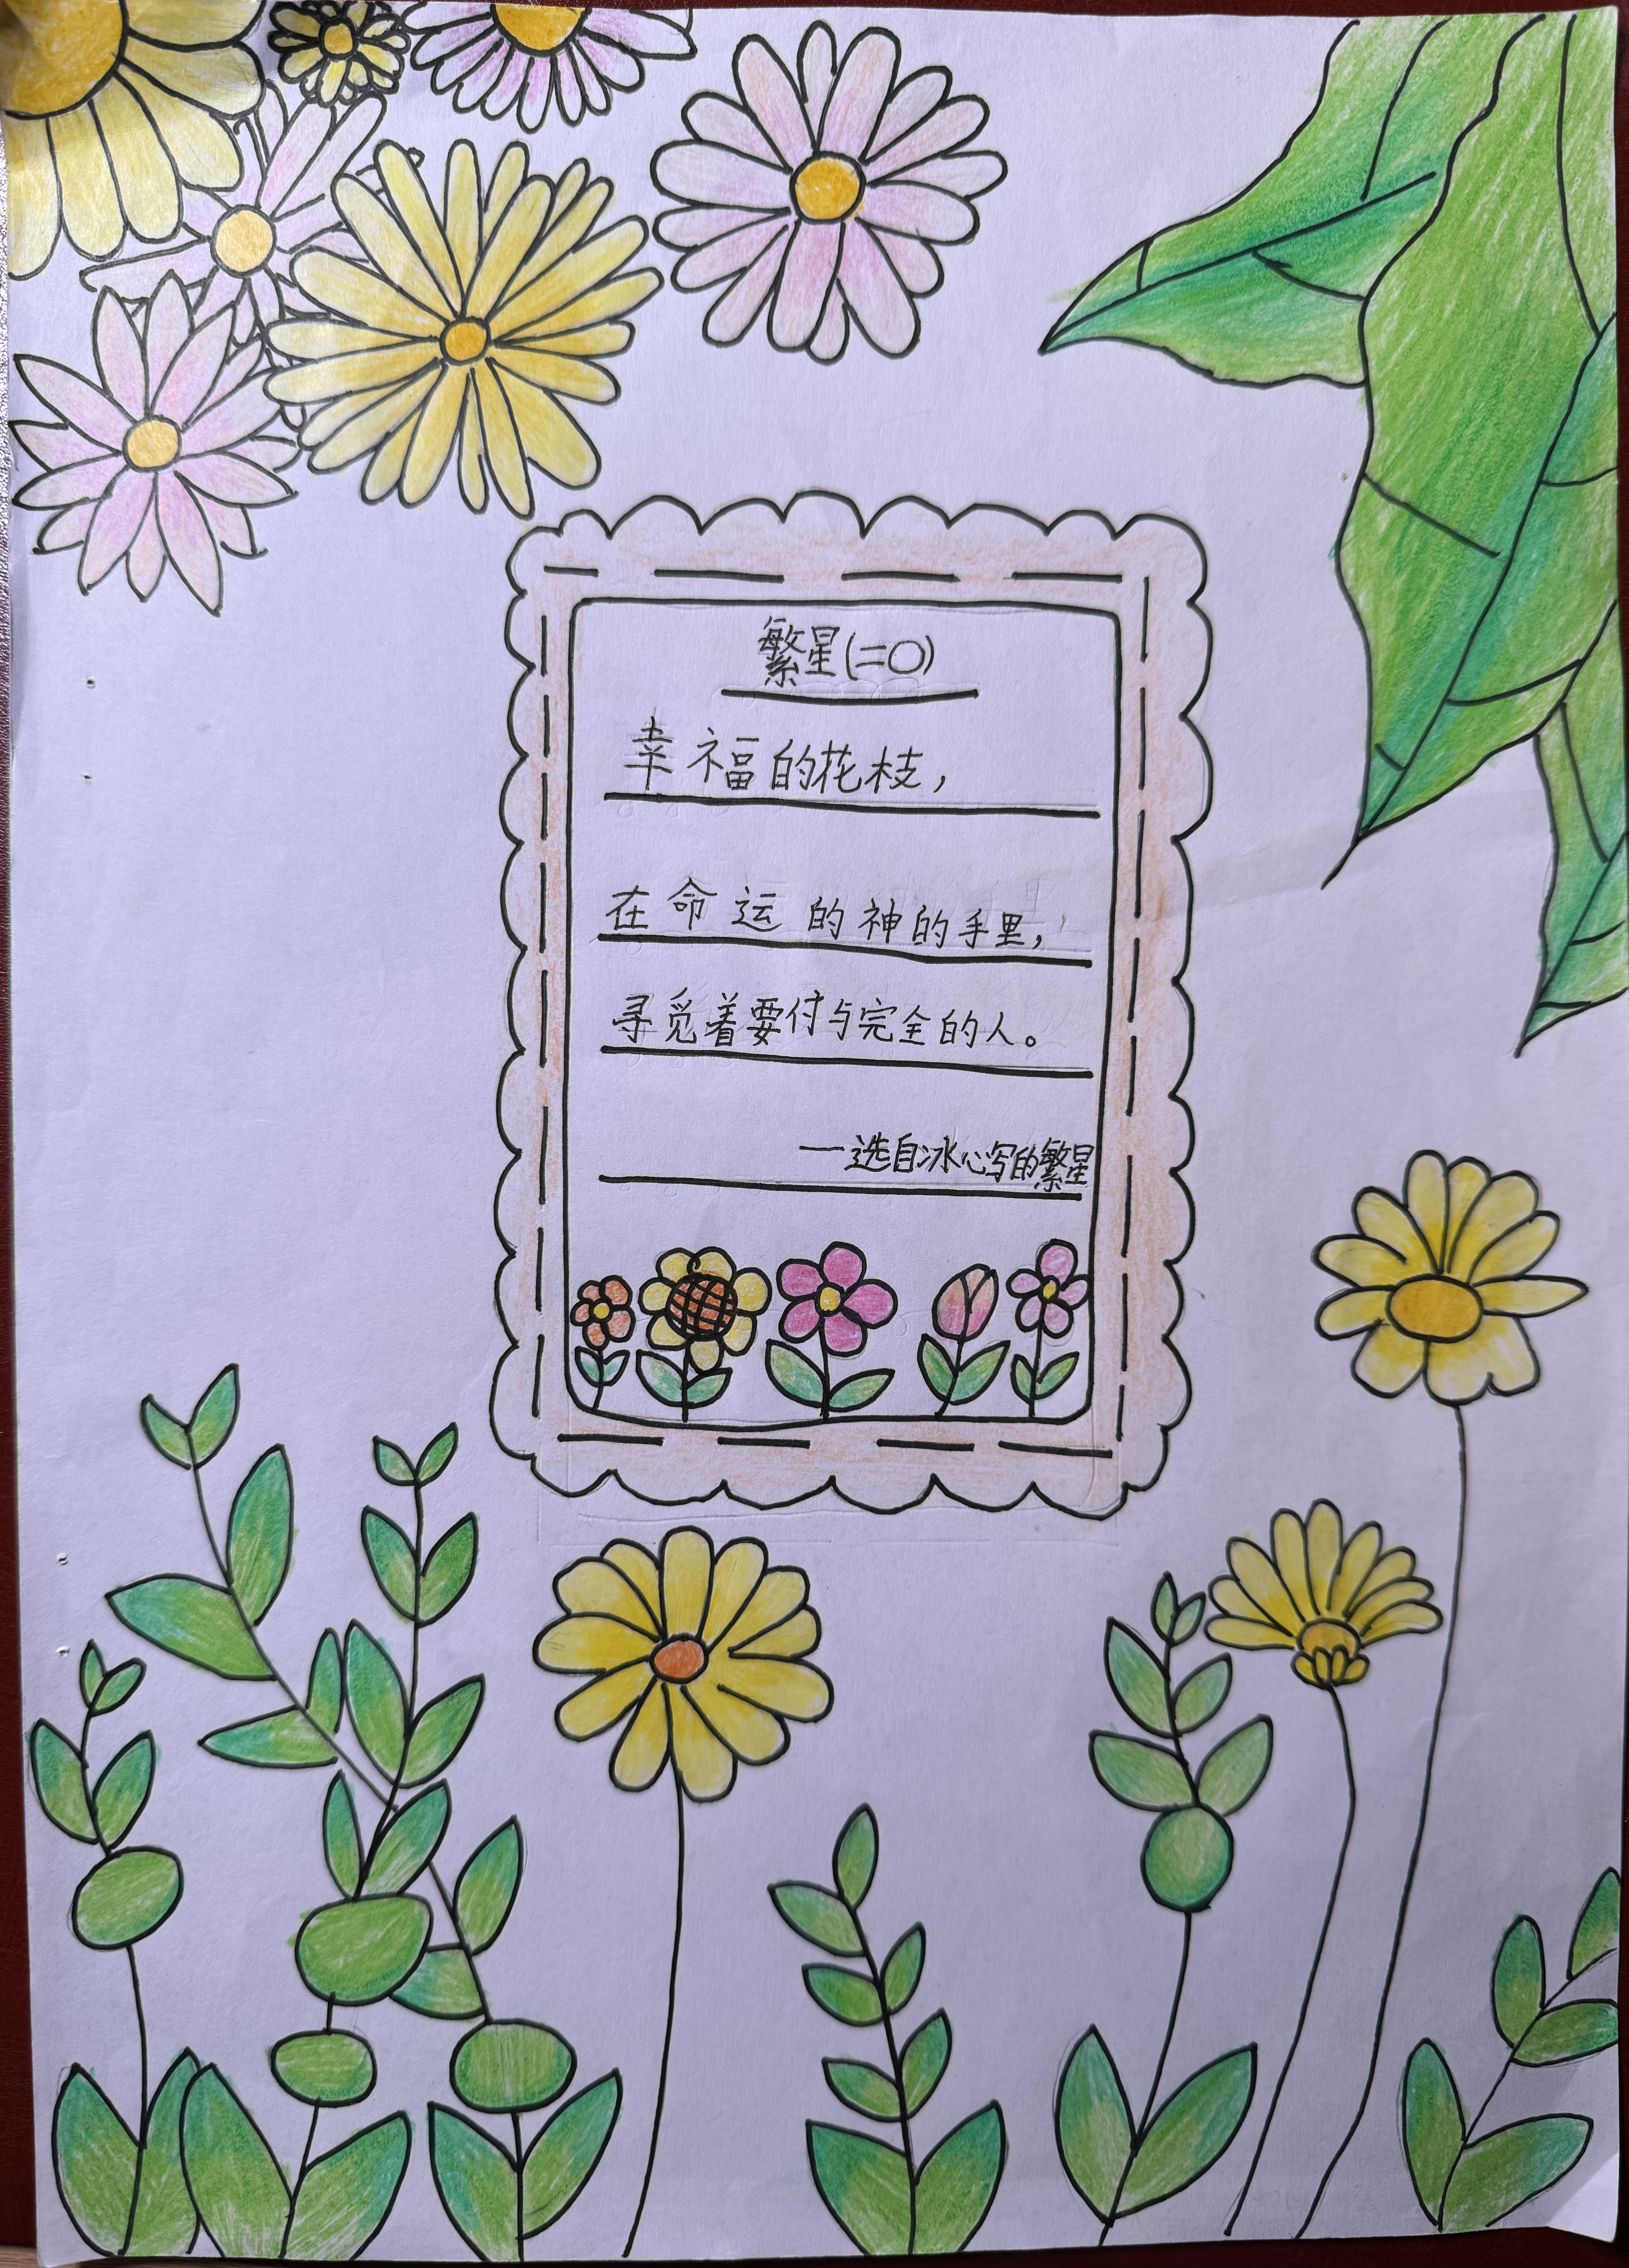 繁星(二〇)
幸福的花枝，
在命运的神的手里，
寻觅着要付与完全的人。
——选自冰心写的繁星